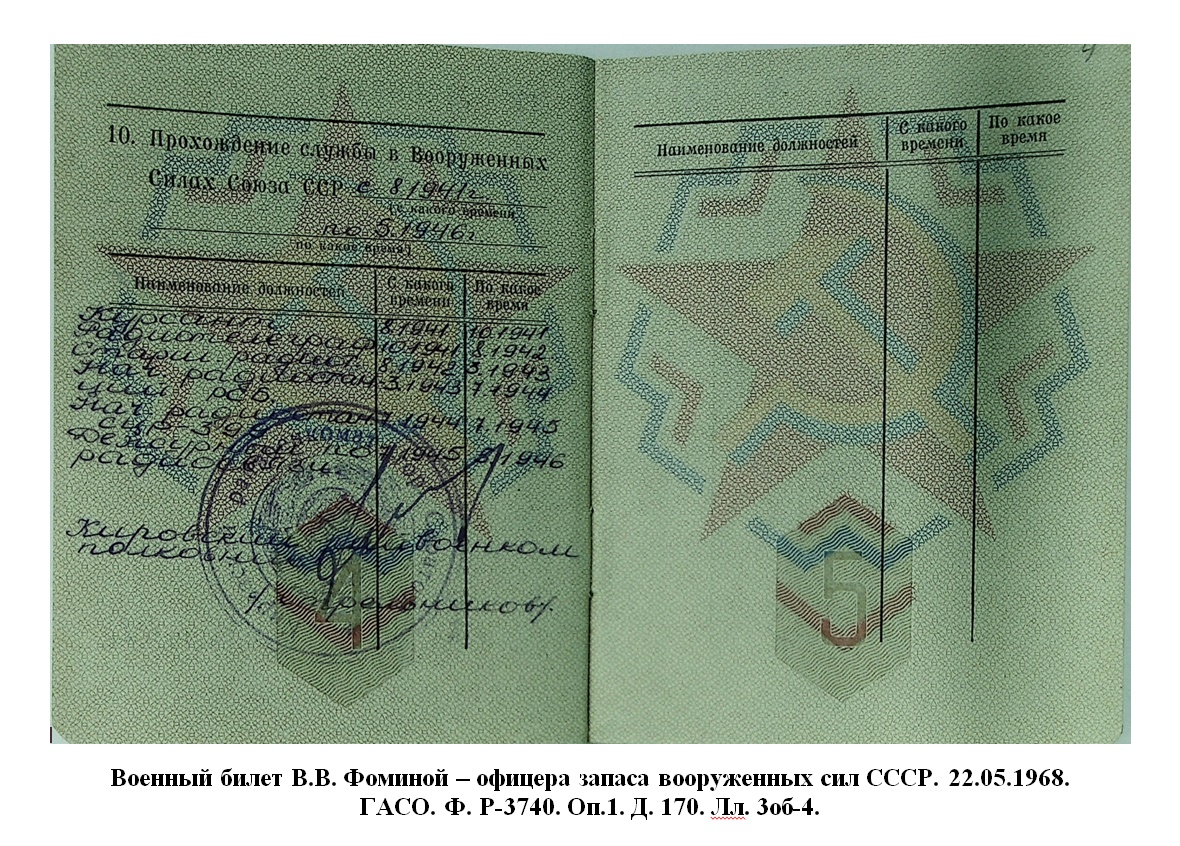 4
10. Прохождение службы в Вооруженных
Силах Союза ССР с 8 1941г
(с какого времени
по 5.1946г
по какое время)
Наименование должностей
С какого времени
По какое время
Курсант 8 1941 10 1941
Радиотелеграф 10 1941 8 1942
Старш радист 8 1942 3 1943
Нач радиостан 3 1943 1 1944
ции РСБ
Нач радиостан 1 1944 1.1945
Дежурный по 1 1945 1946
радиосвязи
Кировский райвоенком
полковник
4
Наименование должностей
С какого времени
По какое время
5
Военный билет В.В. Фоминой – офицера запаса вооруженных сил СССР. 22.05.1968.
ГАСО. Ф. Р-3740. Оп.1. Д. 170. Лл. 3об-4.